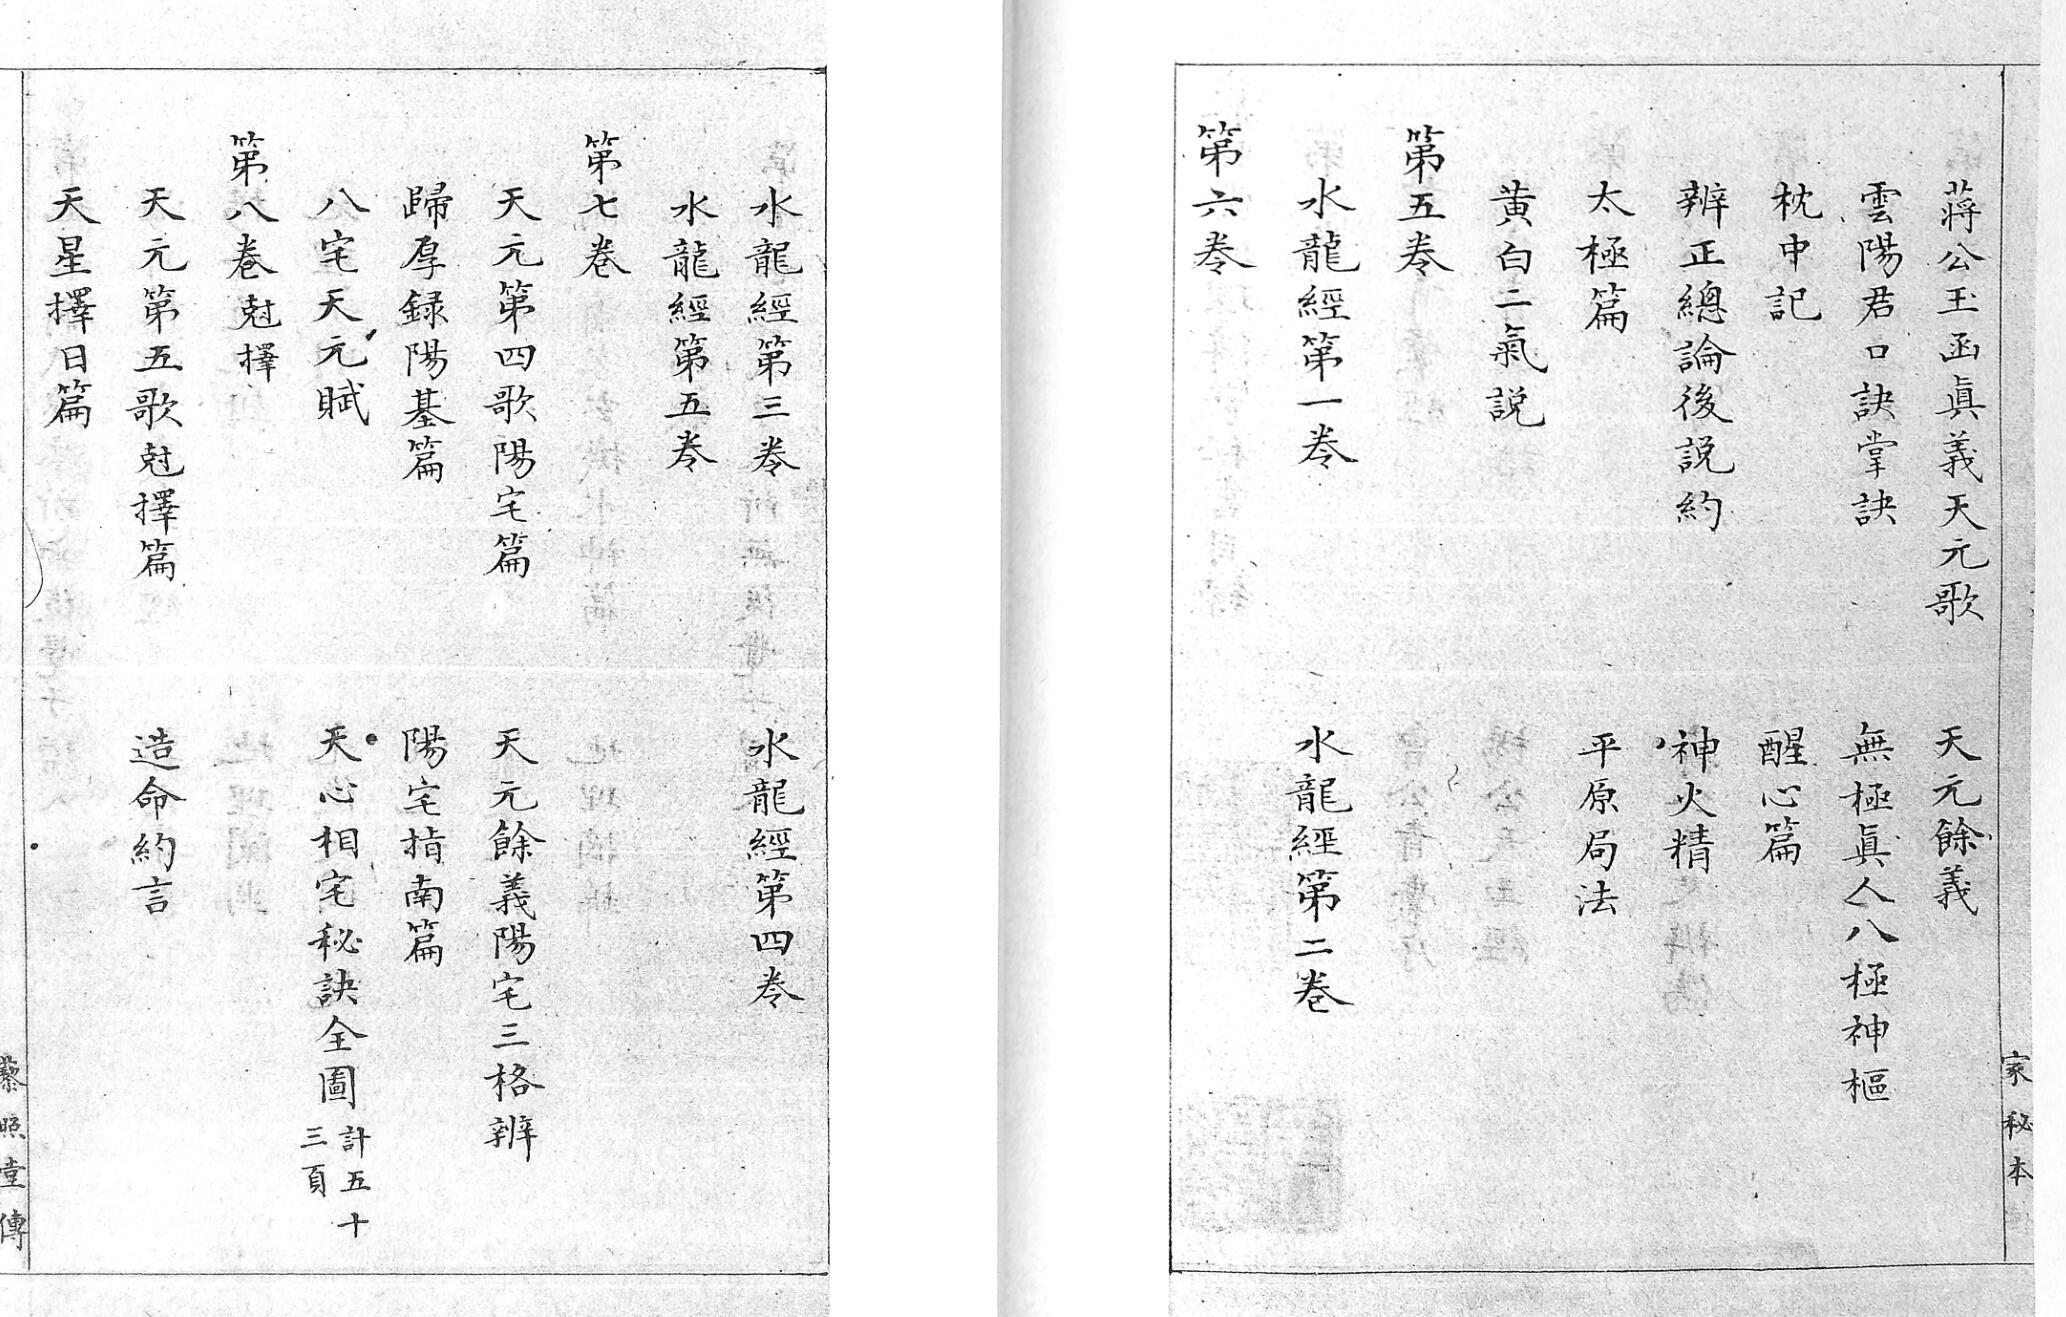 蔣公玉函眞義天元歌　天元餘義
雲陽君口訣掌訣　無極眞人八極神樞
枕中記　醒心篇
辨正總論後説約　神火精
太極篇　平原局法
黄白二氣説
第五卷
水龍經第一卷　水龍經第二卷
第六卷
家秘本
水龍經第三卷　水龍經第四卷
水龍經第五卷
第七卷
天元第四歌陽宅篇　天元餘義陽宅三格辨
歸厚録陽基篇　陽宅指南篇
八宅天元賦　天心相宅秘訣全圖 計五十三頁
第八卷尅擇
天元第五歌尅擇篇　造命約言
天星擇日篇
藜照堂傳